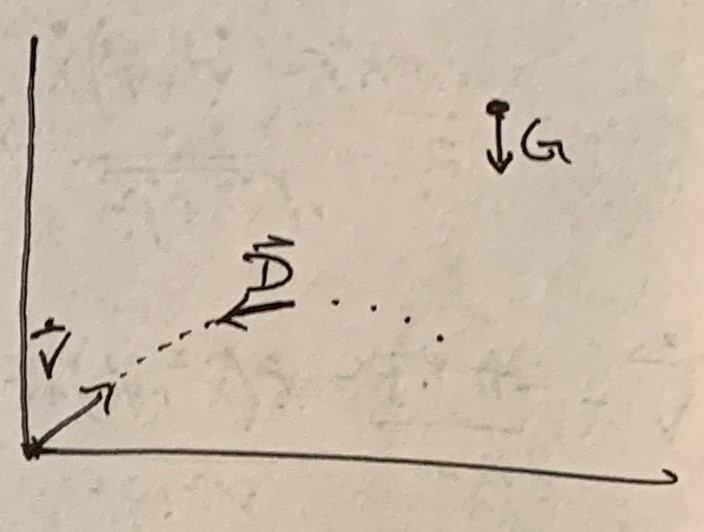 G
D
V